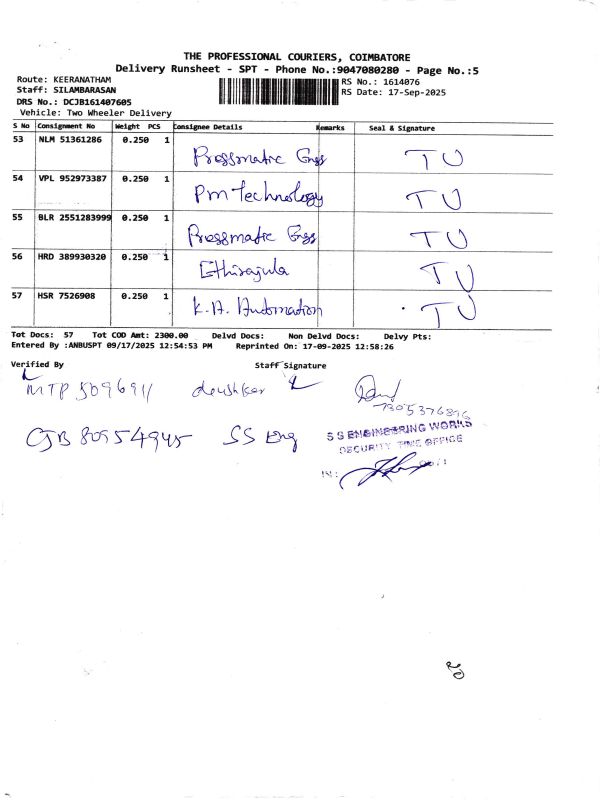 THE PROFESSIONAL COURIERS, COIMBATORE
Delivery Runsheet - SPT - Phone No.:9047080280 - Page No.:5
Route: KEERANATHAM
Staff: SILAMBARASAN
DRS No.: DCJB161407605
Vehicle: Two Wheeler Delivery
RS No.: 1614076
RS Date: 17-Sep-2025
S No Consignment No Weight PCS Consignee Details Remarks Seal & Signature
53 NLM 51361286 0.250 1 Pressmatic Engg TU
54 VPL 952973387 0.250 1 Pm Technology TU
55 BLR 2551283999 0.250 1 Pressmatic Engg TU
56 HRD 389930320 0.250 1 Ethirajula TU
57 HSR 7526908 0.250 1 K.A. Automation TU
Tot Docs: 57 Tot COD Amt: 2300.00 Delvd Docs: Non Delvd Docs: Delvy Pts:
Entered By :ANBUSPT 09/17/2025 12:54:53 PM Reprinted On: 17-09-2025 12:58:26
Verified By Staff Signature
MTP 509691
7305376896
CJB 80954945 SS Eng
S S ENGINEERING WORKS
SECURITY TIME OFFICE